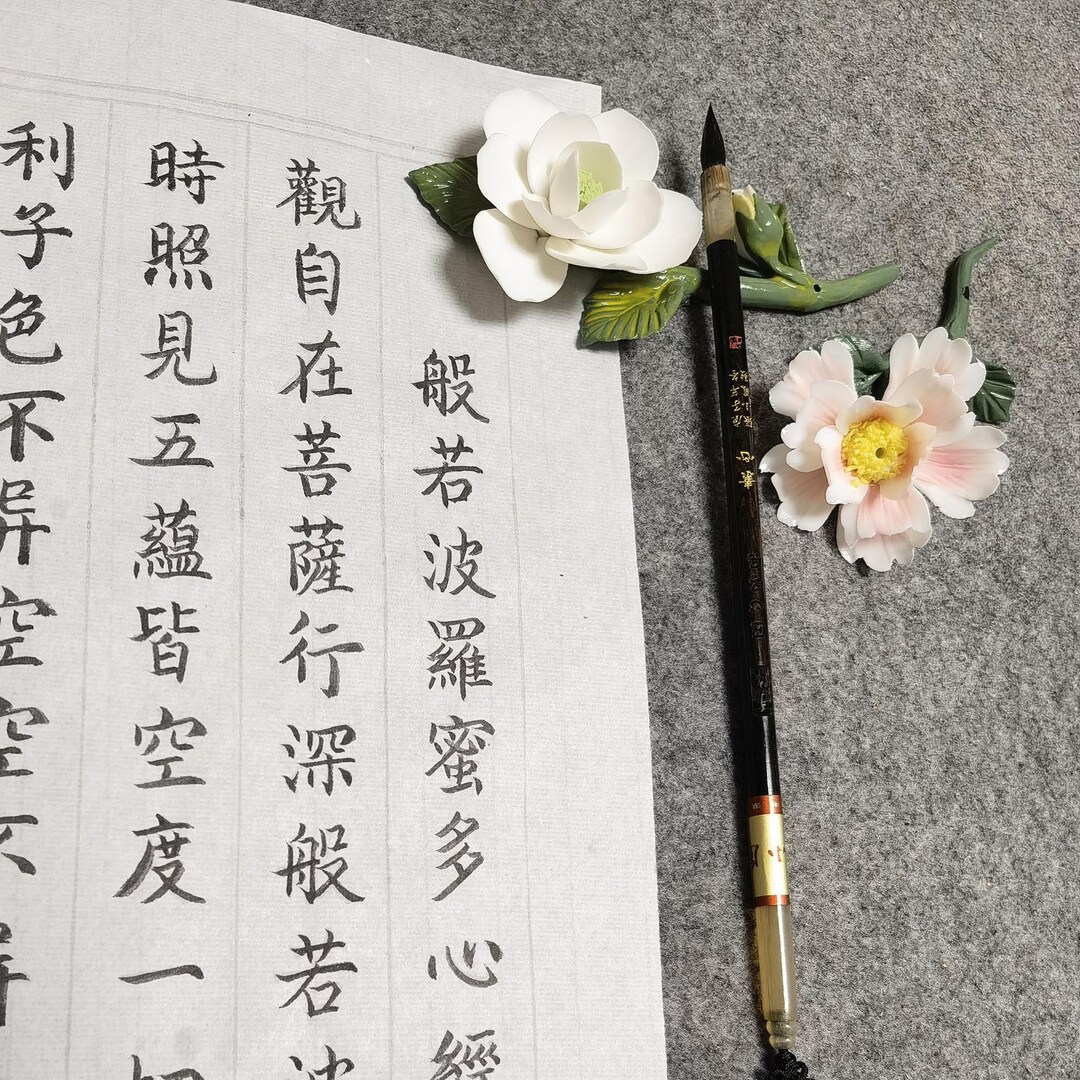 般若波羅蜜多心經
觀自在菩薩行深般若波
時照見五蘊皆空度一切
利子色不異空空不異